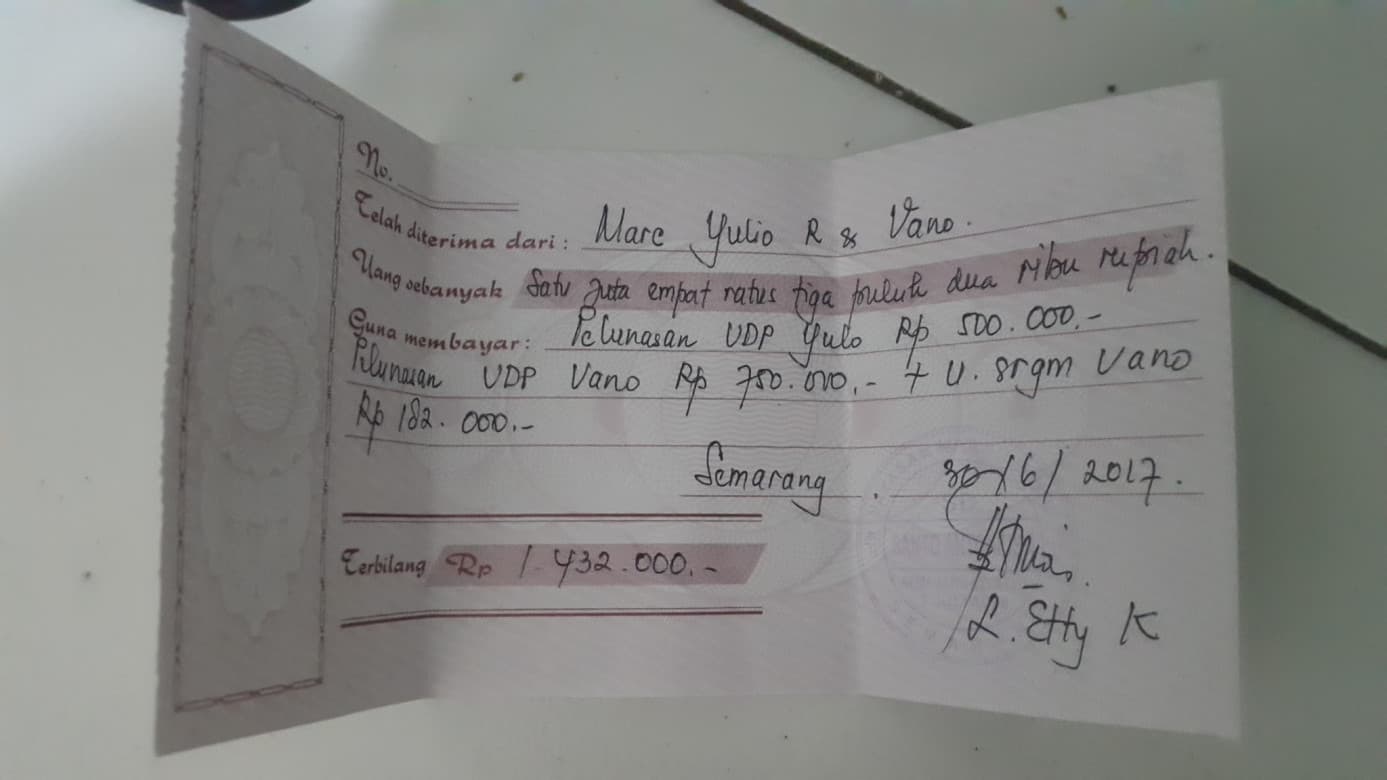 No.
Telah diterima dari : Marc Yulio R & Vano.
Uang sebanyak Satu juta empat ratus tiga puluh dua ribu rupiah.
Guna membayar : Pelunasan UDP Yulo Rp 500.000.-
Pelunasan UDP Vano Rp 750.000.- + U. srgm Vano
Rp 182.000.-
Semarang . 30/6/2017.
Terbilang Rp 1.432.000.-
L. Etty K